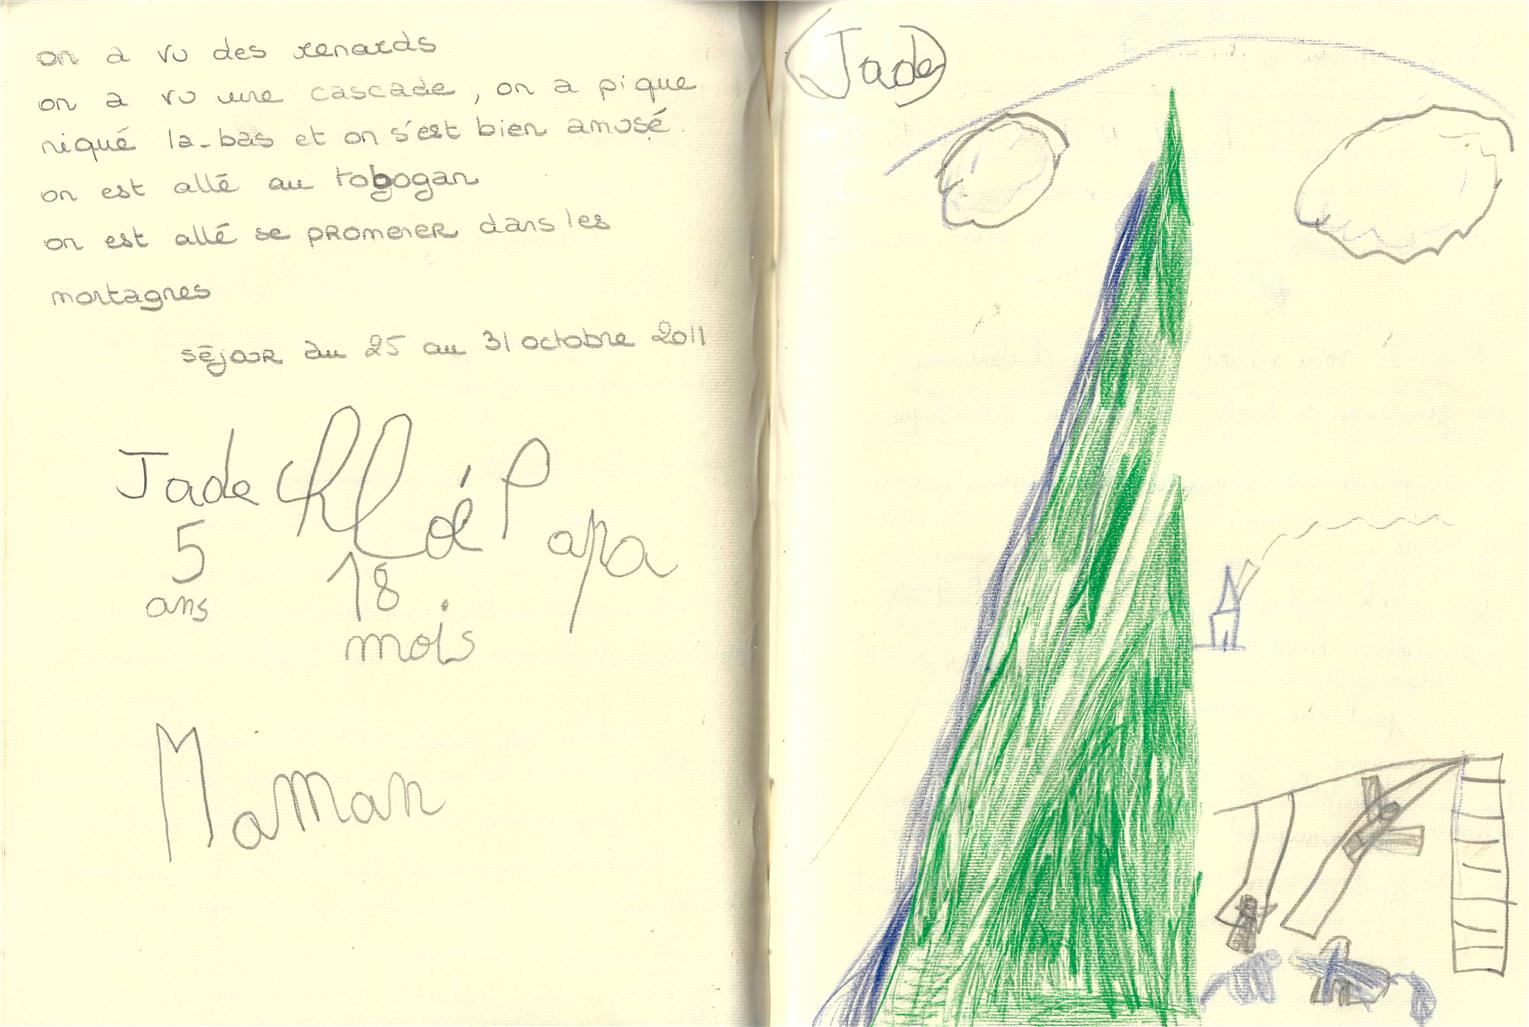 on a vu des renards
on a vu une cascade, on a pique
niqué la-bas et on s'est bien amusé.
on est allé au tobogan
on est allé se promener dans les
montagnes
séjour du 25 au 31 octobre 2011
Jade Chloé Papa
5 18
ans mois
Maman
Jade